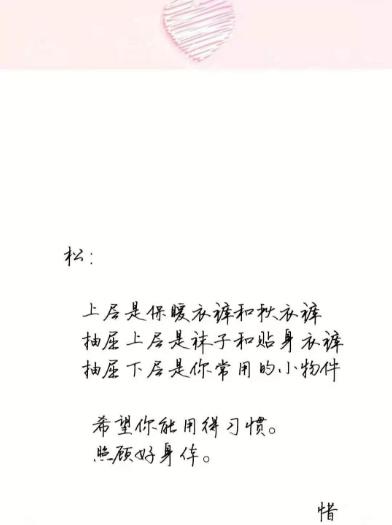 松:
上层是保暖衣裤和秋衣裤
抽屉上层是袜子和贴身衣裤
抽屉下层是你常用的小物件
希望你能用得习惯。
照顾好身体。
惜